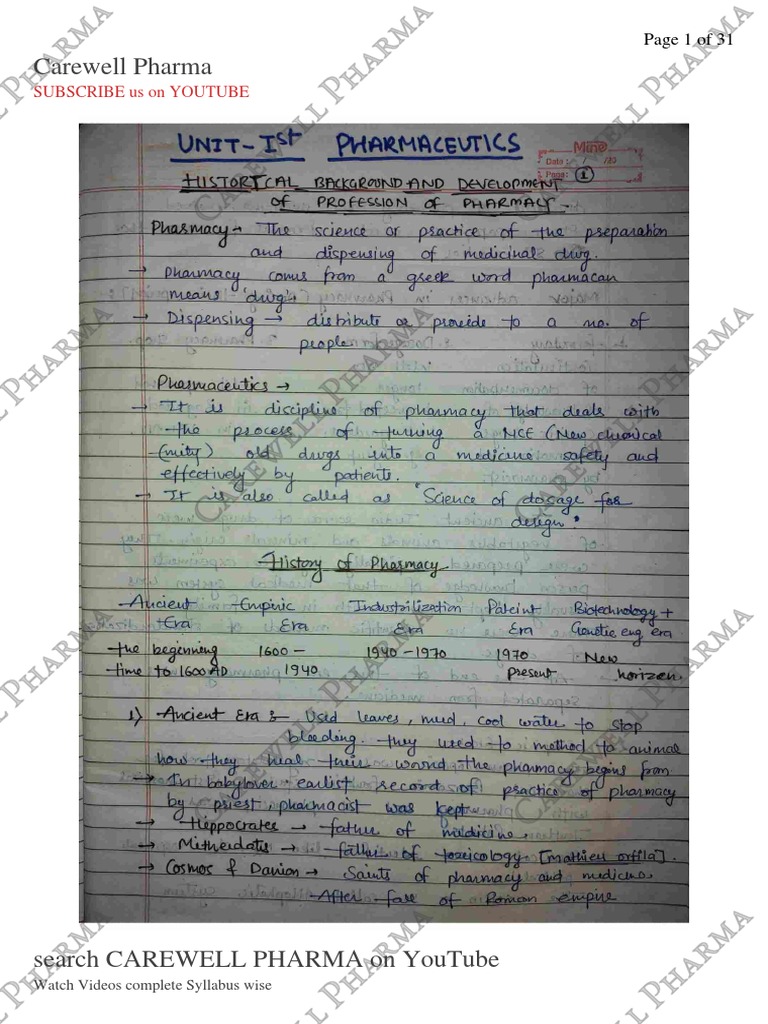 Page 1 of 31
Carewell Pharma
SUBSCRIBE us on YOUTUBE
UNIT-Ist PHARMACEUTICS
Mine
Date : / /20
Page: 1
HISTORICAL BACKGROUND AND DEVELOPMENT
of PROFESSION of PHARMACY.
Pharmacy → The science or practice of the preparation
and dispensing of medicinal drug.
→ Pharmacy comes from a greek word pharmacan
means 'drug'
→ Dispensing → distribute or provide to a no. of
people
Pharmaceutics →
→ It is discipline of pharmacy that deals with
the process of turning a NCE (New chemical
(nity) old drugs into a medicine safety and
effectively by patients.
→ It is also called as "Science of dosage for
design"
History of Pharmacy
Ancient Empiric Industrilization Pateint Biotechnology +
Era Era Era Era Genetic eng era
the beginning 1600 - 1940 - 1970 1970 New
time to 1600 AD 1940 present horizen
1) Ancient Era :- Used leaves, mud, cool water to stop
bleeding. they used to method to animal
how they heal their wornd the pharmacy begins from
→ In babylover earlist record of practice of pharmacy
by priest, pharmacist was kept
→ Hippocrates → father of maldicine.
→ Mitheridatis → father of toxicology [mathieu orfila].
→ Cosmos & Danion → Saints of pharmacy and medicine
After fare of Roman empire
search CAREWELL PHARMA on YouTube
Watch Videos complete Syllabus wise
CAREWELL PHARMA